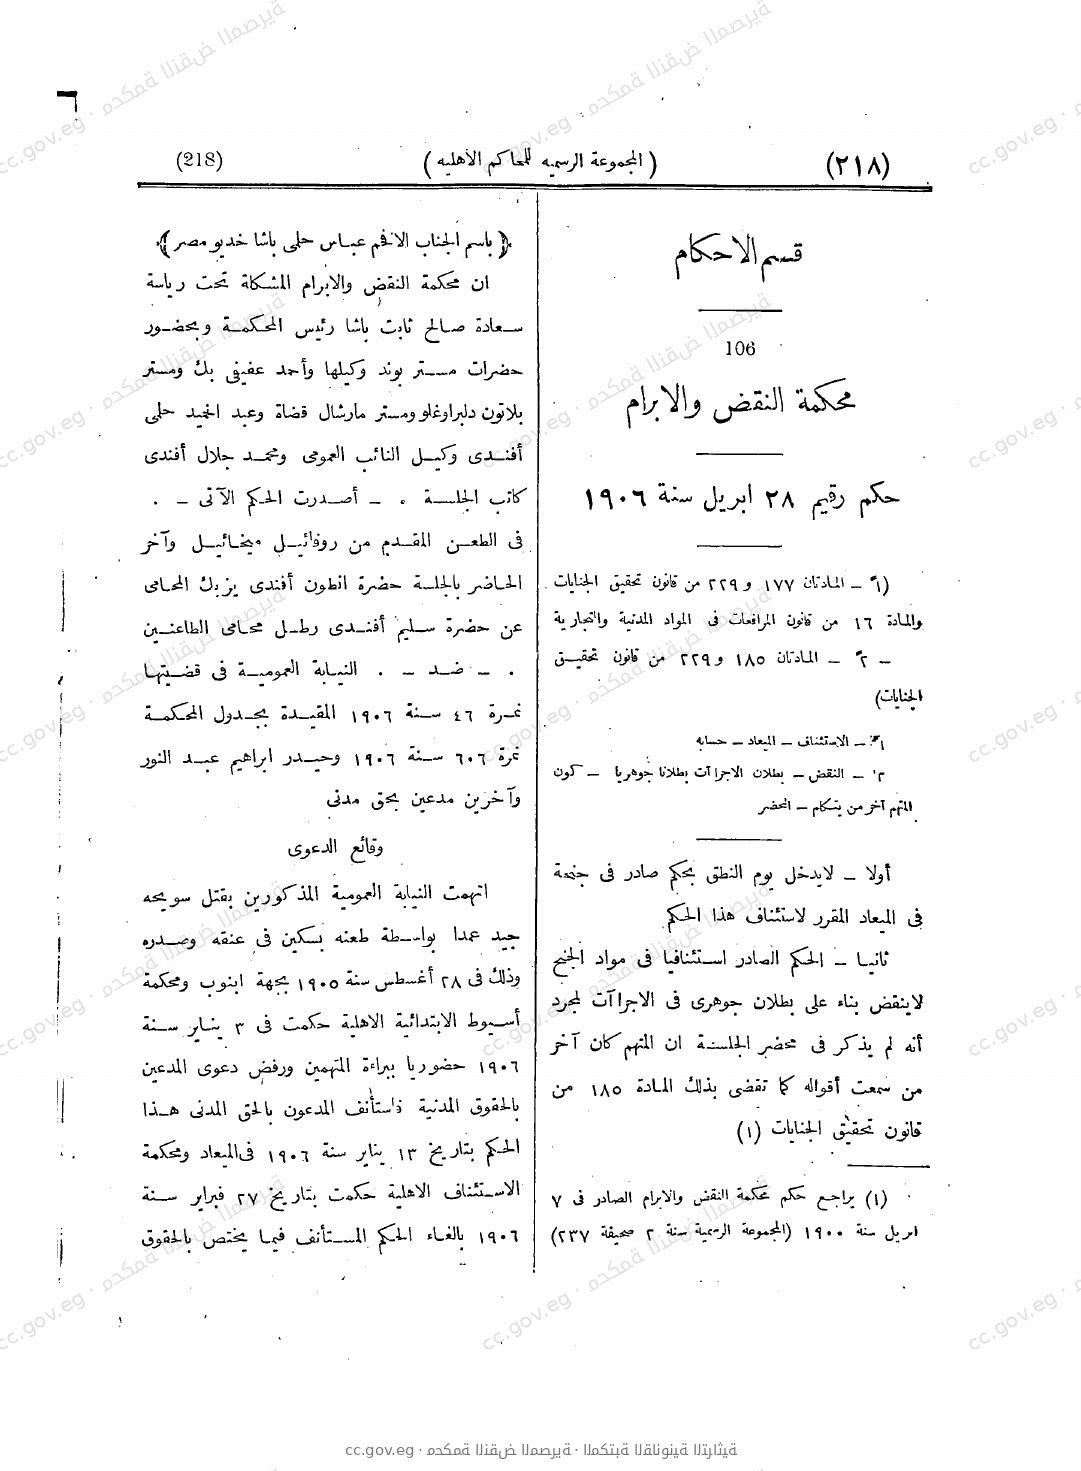 (٢١٨)
(المجموعة الرسميه للمحاكم الأهليه)
(218)
قسم الاحكام
106
محكمة النقض والابرام
حكم رقيم ٢٨ ابريل سنة ١٩٠٦
(١ً – المادتان ١٧٧ و ٢٢٩ من قانون تحقيق الجنايات
والمادة ١٦ من قانون المرافعات فى المواد المدنية والتجارية
– ٢ً – المادتان ١٨٥ و ٢٢٩ من قانون تحقيـق
الجنايات)
١ً – الاستئناف – الميعاد – حسابه
٢ً – النقض – بطلان الاجراآت بطلانا جوهريا – كون
المتهم آخر من يتكلم – المحضر
أولا – لايدخل يوم النطق بحكم صادر فى جنحة
فى الميعاد المقرر لاستئناف هذا الحكم
ثانيـا – الحكم الصادر استئنافيا فى مواد الجنح
لاينقض بناء على بطلان جوهرى فى الاجراآت لمجرد
أنه لم يذكر فى محضر الجلسة ان المتهم كان آخر
من سمعت أقواله كما تقضى بذلك المادة ١٨٥ من
قانون تحقيق الجنايات (١)
(١) يراجع حكم محكمة النقض والابرام الصادر فى ٧
ابريل سنة ١٩٠٠ (المجموعة الرسمية سنة ٢ صحيفة ٢٣٧)
﴿ باسم الجناب الافخم عباس حلمى باشا خديو مصر ﴾
ان محكمة النقض والابرام المشكلة تحت رياسة
سـعادة صالح ثابت باشا رئيس المحكمـة وبحضـور
حضرات مسـتر بوند وكيلها وأحمد عفيفى بك ومستر
بلاتون دلبراوغلو ومستر مارشال قضاة وعبد المجيد حلمى
أفنـدى وكيـل النائب العمومى ومحمـد جلال أفندى
كاتب الجلسـة . – أصـدرت الحـكم الآتى – .
فى الطعـن المقـدم من روفائيـل ميخـائيـل وآخر
الحاضر بالجلسة حضرة انطون أفندى يزبك المحامى
عن حضرة سـليم أفنـدى رطـل محامى الطاعنـين
. – ضـد – . النيابة العموميـة فى قضـيتها
نمـرة ٤٦ سـنة ١٩٠٦ المقيـدة بجـدول المحكمـة
نمرة ٦٠٦ سـنة ١٩٠٦ وحيـدر ابراهيم عبـد النور
وآخرين مدعين بحق مدنى
وقائع الدعوى
اتهمت النيابة العمومية المذكورين بقتل سويحه
جيـد عمدا بواسـطة طعنه بسكين فى عنقه وصـدره
وذلك فى ٢٨ أغسطس سنة ١٩٠٥ بجهة ابنوب ومحكمة
أسيوط الابتدائية الاهلية حكمت فى ٣ يناير سـنة
١٩٠٦ حضوريا ببراءة المتهمين ورفض دعوى المدعين
بالحقوق المدنية فاستأنف المدعون بالحق المدنى هـذا
الحكم بتاريخ ١٣ يناير سنة ١٩٠٦ فى الميعاد ومحكمة
الاستئناف الاهلية حكمت بتاريخ ٢٧ فبراير سـنة
١٩٠٦ بالغـاء الحكم المسـتأنف فيمـا يختص بالحقوق
cc.gov.eg · محكمة النقض المصرية · المكتبة القانونية التراثية